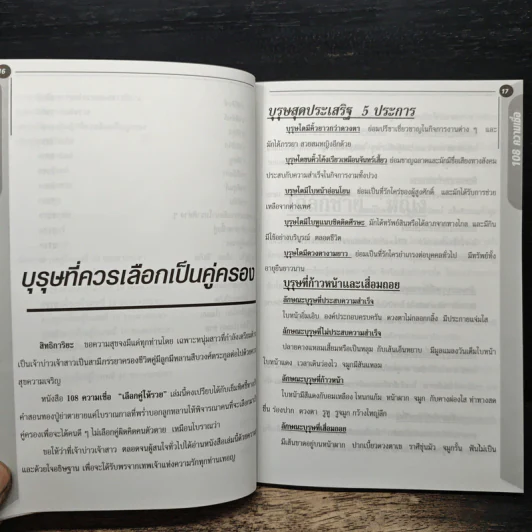 บุรุษที่ควรเลือกเป็นคู่ครอง
สิทธิการิยะ ขอความสุขจงมีแด่ทุกท่านโดย เฉพาะหนุ่มสาวที่กำลังเตรียมตัว
เป็นเจ้าบ่าวเจ้าสาวเป็นสามีภรรยาครองชีวิตคู่มีลูกมีหลานสืบวงศ์ตระกูลต่อไปด้วยความ
สุขความเจริญ
หนังสือ 108 ความเชื่อ "เลือกคู่ให้รวย" เล่มนี้คงเปรียบได้กับเข็มทิศชี้ทาง
คำสอนของปู่ย่าตายายแต่โบราณกาลที่พร่ำบอกลูกหลานให้พิจารณาคนที่จะเลือก
คู่ครองเพื่อจะได้คนดี ๆ ไม่เลือกคู่ผิดคิดจนตัวตาย เหมือนโบราณว่า
ขอให้ว่าที่เจ้าบ่าวเจ้าสาว ตลอดจนผู้สนใจทั่วไปได้อ่านหนังสือเล่มนี้ด้วยความ
และด้วยใจอธิษฐาน เพื่อจะได้รับพรจากเทพเจ้าแห่งความรักทุกท่านเทอญ
17
108 ความเชื่อ
บุรุษสุดประเสริฐ 5 ประการ
บุรุษใดมีคิ้วยาวกว่าดวงตา ย่อมปรีชาเชี่ยวชาญในกิจการงานต่าง ๆ และ
มักได้ภรรยา สวยสมหญิงอีกด้วย
บุรุษใดขนคิ้วโค้งเรียวเหมือนจันทร์เสี้ยว ย่อมชาญฉลาดและมักมีชื่อเสียงทางสังคม
ประสบกับความสำเร็จในกิจการงานทั้งปวง
บุรุษใดมีใบหน้าอ่อนโยน ย่อมเป็นที่รักใคร่ของผู้สูงศักดิ์ และมักได้รับการช่วย
เหลือจากต่างเพศ
บุรุษใดมีใบหูแนบชิดติดศีรษะ มักได้ทรัพย์สินหรือได้ลาภจากทางไกล และมีกิน
มีใช้อย่างบริบูรณ์ ตลอดชีวิต
บุรุษใดมีดวงตางามยาว ย่อมเป็นที่รักใคร่ยำเกรงต่อบุคคลทั่วไป มีทรัพย์ทั้ง
อายุยืนยาวนาน
บุรุษที่ก้าวหน้าและเสื่อมถอย
ลักษณะบุรุษที่ประสบความสำเร็จ
ใบหน้าอิ่มเอิบ องค์ประกอบครบครัน ดวงตาไม่กลอกกลิ้ง มีประกายแจ่มใส
ลักษณะบุรุษที่ไม่ประสบความสำเร็จ
ปลายคางแหลมเสี้ยมหรือเป็นหลุม กับเส้นเอ็นหยาบ มีมูลแมลงวันเต็มใบหน้า
ใบหน้าแดง เวลาเดินว่องไว จมูกมีสันแหลม
ลักษณะบุรุษที่ก้าวหน้า
ใบหน้ามีสีแดงกับอมเหลือง โหนกแก้ม หน้าผาก จมูก กับคางผ่องใส ท่าทางสด
ชื่น ร่องปาก ดวงตา รูหู รูจมูก กว้างใหญ่ลึก
ลักษณะบุรุษที่เสื่อมถอย
มีเส้นขาดอยู่บนหน้าผาก ปากเบี้ยวดวงตาเข ราศีขุ่นมัว จมูกรั้น ฟันไม่เป็น